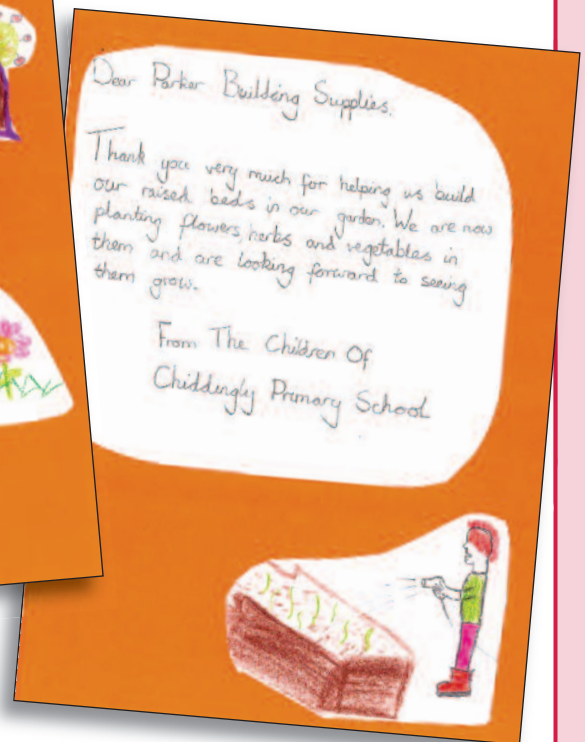 Dear Parker Building Supplies.
Thank you very much for helping us build
our raised beds in our garden. We are now
planting flowers, herbs and vegetables in
them and are looking forward to seeing
them grow.
From The Children Of
Chiddingly Primary School